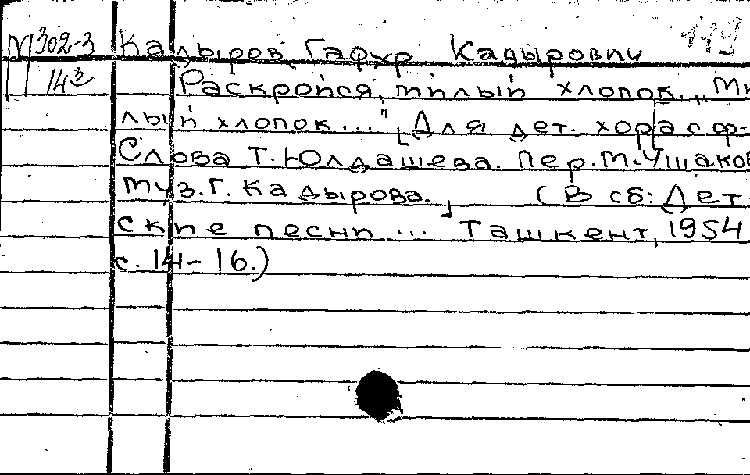 М 302-3 Кадыров, Гафур Кадырович 119
14³ Раскройся, милый хлопок. „Ми-
лый хлопок..." [Для дет. хора с ф-
Слова Т. Юлдашева. Пер. М. Ушаков
Муз. Г. Кадырова.] (В сб: Дет
ские песни... Ташкент, 1954
с. 14-16.)